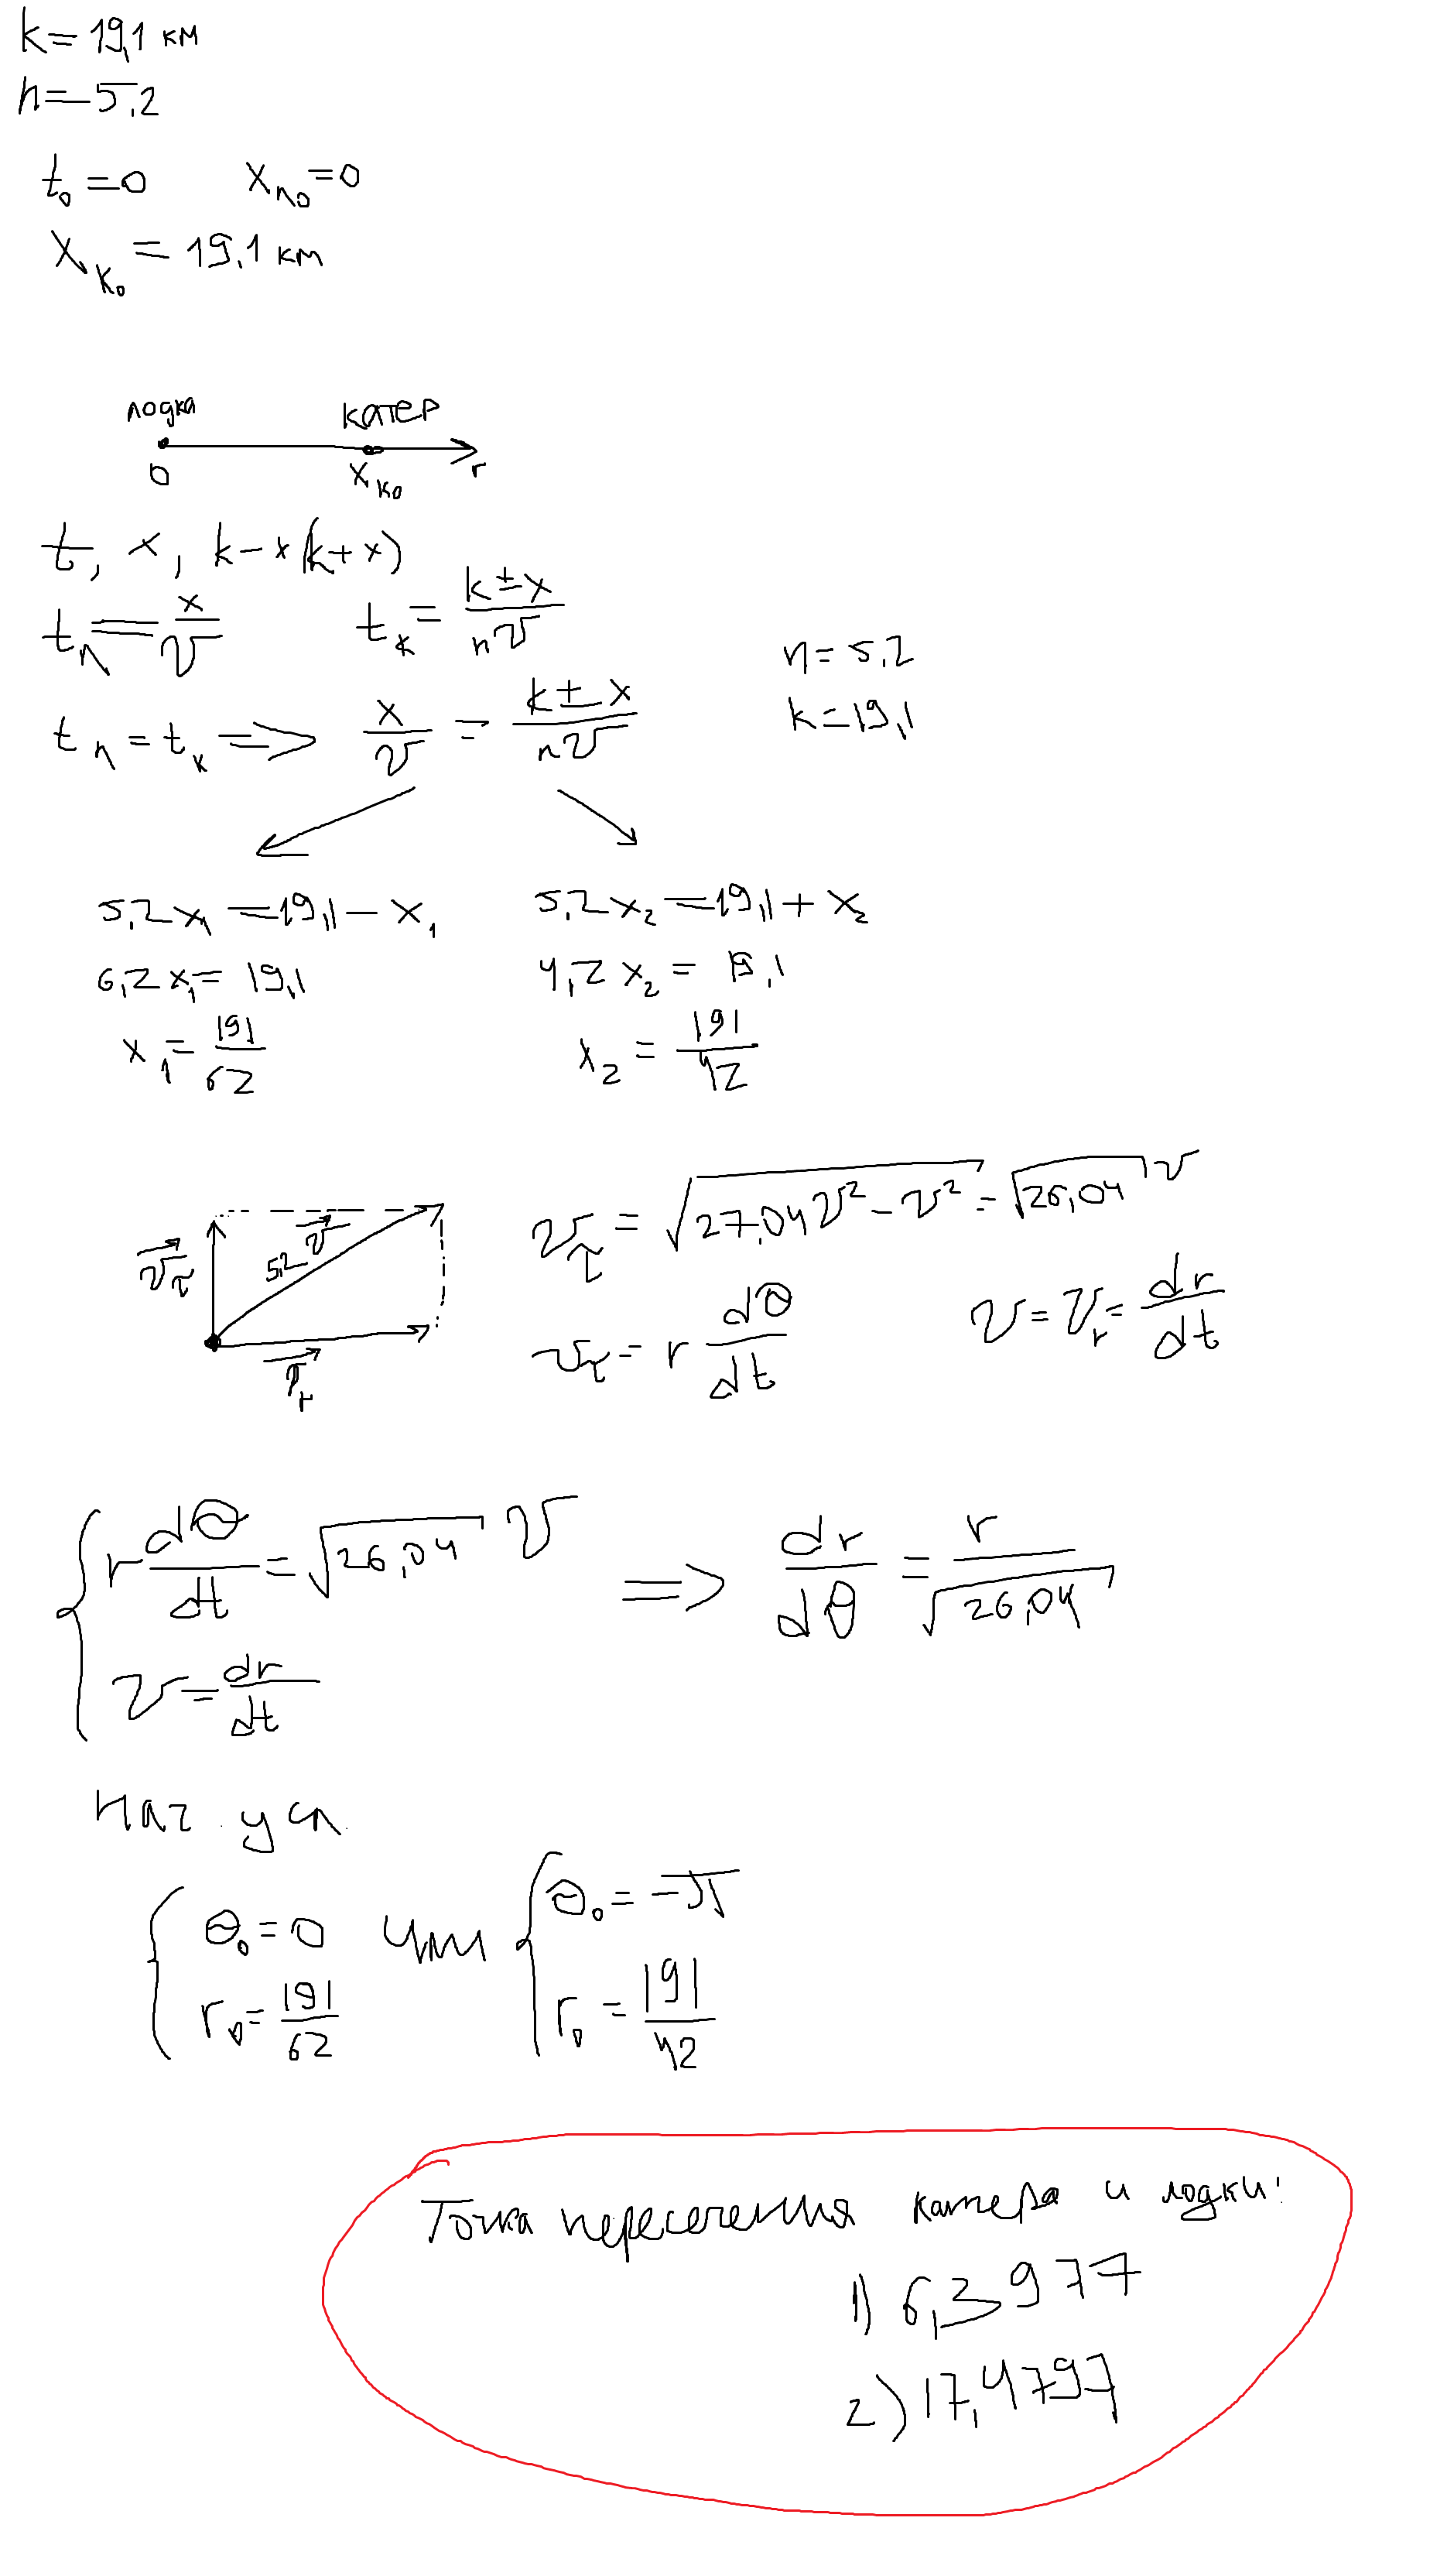 k = 19,1 км
n = 5,2
t₀ = 0 x_л₀ = 0
x_к₀ = 19,1 км
лодка катер
0 x_к₀ r
t, x, k - x (k + x)
t_л = x/v t_к = (k ± x)/(nv)
n = 5,2
k = 19,1
t_л = t_к => x/v = (k ± x)/(nv)
5,2x₁ = 19,1 - x₁ 5,2x₂ = 19,1 + x₂
6,2x₁ = 19,1 4,2x₂ = 19,1
x₁ = 191/62 x₂ = 191/42
v_τ 5,2 v v_r
v_τ = √(27,04v² - v²) = √26,04 v
v_τ = r dθ/dt v = v_r = dr/dt
{ r dθ/dt = √26,04 v => dr/dθ = r/√26,04
v = dr/dt
Нач. усл
{ θ₀ = 0 или { θ₀ = -π
r₀ = 191/62 r₀ = 191/42
Точка пересечения катера и лодки:
1) 6,3977
2) 17,4797